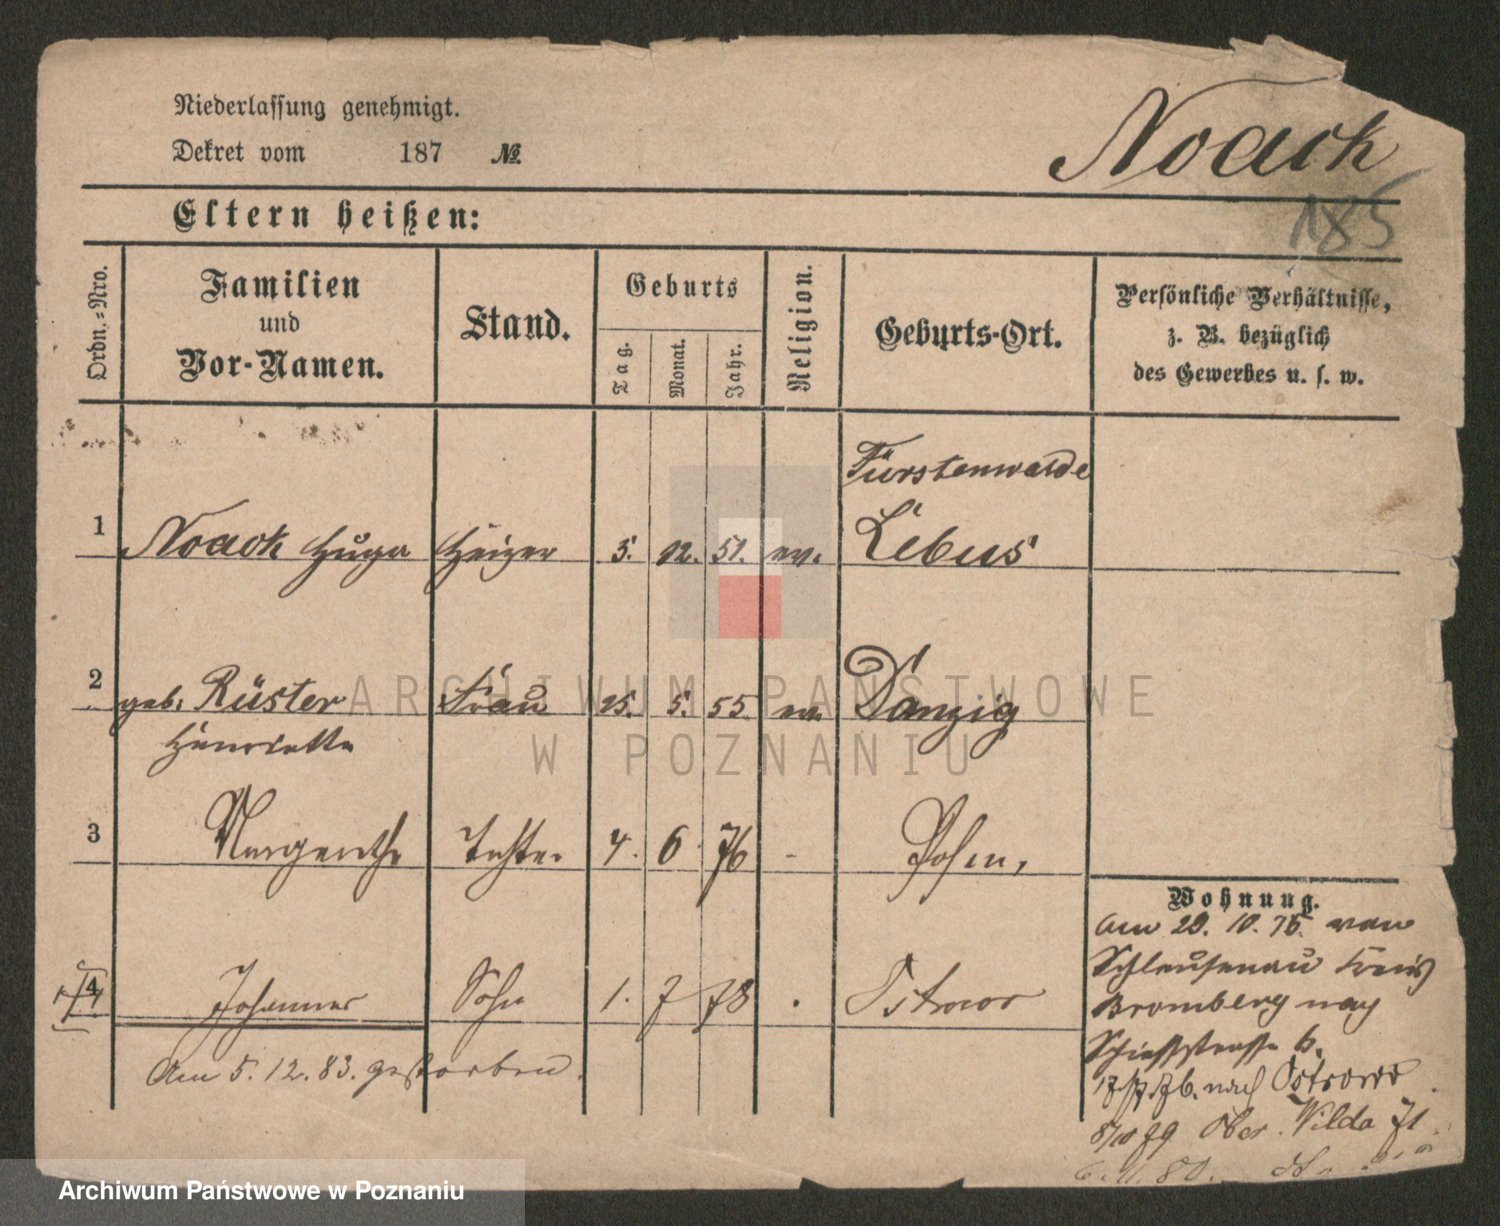 Niederlassung genehmigt.
Dekret vom 187 №
Noack
185
Eltern heißen:
Ordn.=Nro.
Familien
und
Vor-Namen.
Stand.
Geburts
Tag.
Monat.
Jahr.
Religion.
Geburts-Ort.
Persönliche Verhältnisse,
z. B. bezüglich
des Gewerbes u. s. w.
Fürstenwalde
1 Noack Hugo Heizer 5. 12. 51. ev. Lebus
2 geb. Rüster Frau 25. 5. 55. ev. Danzig
Henriette
3 Margarethe Tochter 4. 6. 76 - Posen,
4 Johannes Sohn 1. 7 78 Ostrowo
Am 5. 12. 83. gestorben.
Wohnung.
Am 29. 10. 75. von
Schleusenau Kreis
Bromberg nach
Schießstrasse 6.
nach Ostrowo
8/10 79 Ober. Wilda 71
6. 11. 80.
ARCHIWUM PAŃSTWOWE
W POZNANIU
Archiwum Państwowe w Poznaniu